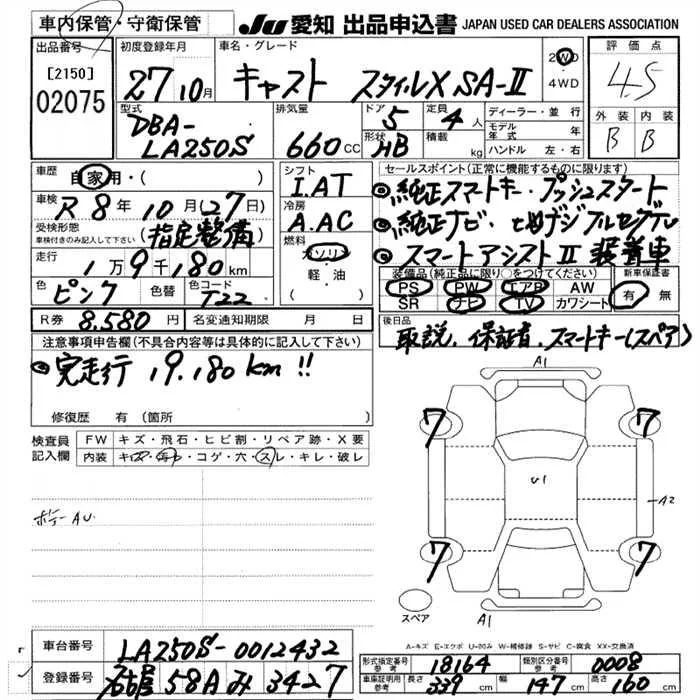 車内保管・守衛保管
JU 愛知 出品申込書 JAPAN USED CAR DEALERS ASSOCIATION
出品番号
[2150]
02075
初度登録年月
27 10月
車名・グレード
キャスト スタイルX SA-II
2WD
・
4WD
評価点
4.5
外装 内装
B B
型式
DBA-
LA250S
排気量
660 cc
ドア
5
形状
HB
定員
4人
積載
kg
ディーラー・並行
モデル年式 年
ハンドル 左・右
車歴
自家用・( )
車検
R8年10月(27日)
受検形態
車検付きのみ記入して下さい
(指定整備)
走行
1万9千180km
色
ピンク
色替
色コード
T22
R券 8,580円
名変通知期限 月 日
シフト
I.AT
冷房
A.AC
燃料
ガソリン
・
軽・油
セールスポイント(正常に機能するものに限ります)
純正スマートキー・プッシュスタート
純正ナビ・フルセグTV
スマートアシストII 装着車
装備品(純正品に限り○をつけてください)
PS PW エアB AW
SR ナビ TV カワシート
新車保証書
有 無
後日品
取説、保証書、スマートキー(スペア)
注意事項申告欄(不具合内容等は具体的に記入して下さい)
完走行 19,180km!!
修復歴 有(箇所
検査員
記入欄
FW キズ・飛石・ヒビ割・リペア跡・X要
内装 キズ・汚レ・コゲ・穴・スレ・キレ・破レ
ボデーAU
A1
7 7
U1
A2
7 7
スペア
A1
A-キズ E-エクボ U-凹み W-補修跡 S-サビ C-腐食 XX-交換済
車台番号 LA250S-0012432
登録番号 名古屋 58A み 3427
形式指定番号
参考
18164
類別区分番号
参考
0008
車庫証明用
参考
長さ 339cm
幅 147cm
高さ 160cm